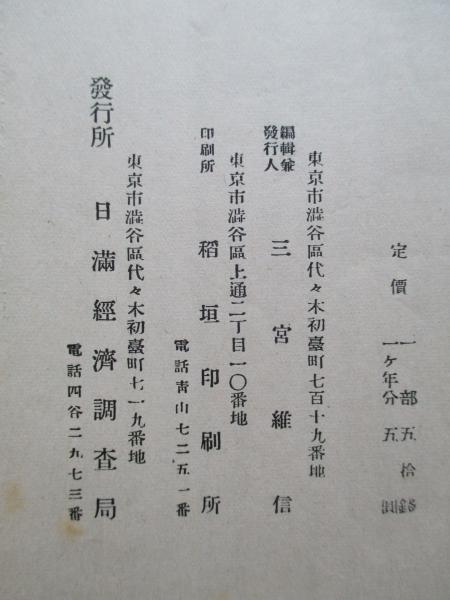 定價
一部五拾錢
一ヶ年分五圓
東京市澁谷區代々木初臺町七百十九番地
編輯兼
發行人
三宮維信
東京市澁谷區上通二丁目一〇番地
印刷所 稻垣印刷所
電話靑山七二五一番
東京市澁谷區代々木初臺町七一九番地
發行所 日滿經濟調査局
電話四谷二九七三番